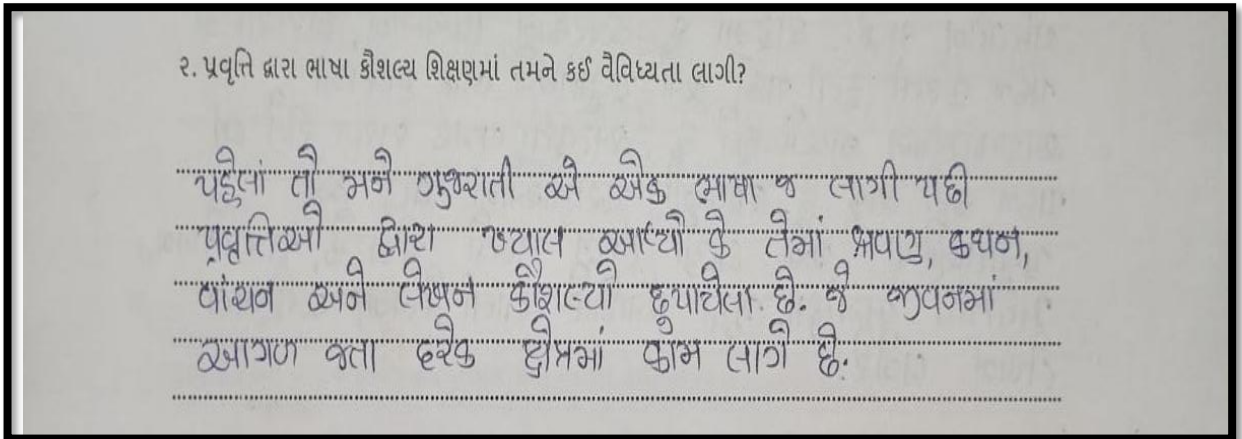 ૨. પ્રવૃત્તિ દ્વારા ભાષા કૌશલ્ય શિક્ષણમાં તમને કઈ વૈવિધ્યતા લાગી?
પહેલાં તો મને ગુજરાતી એ એક ભાષા જ લાગી પછી
પ્રવૃત્તિઓ દ્વારા ખ્યાલ આવ્યો કે તેમાં શ્રવણ, કથન,
વાંચન અને લેખન કૌશલ્યો છૂપાયેલા છે. જે જીવનમાં
આગળ જતા દરેક ક્ષેત્રમાં કામ લાગે છે.